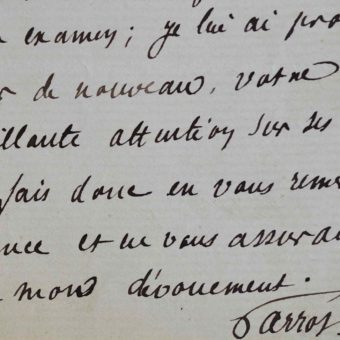 examens; je lui ai pro
de nouveau, votre
illante attention sur ses
fais donc en vous reme
nce et en vous assuran
mon dévouement.
Parrot